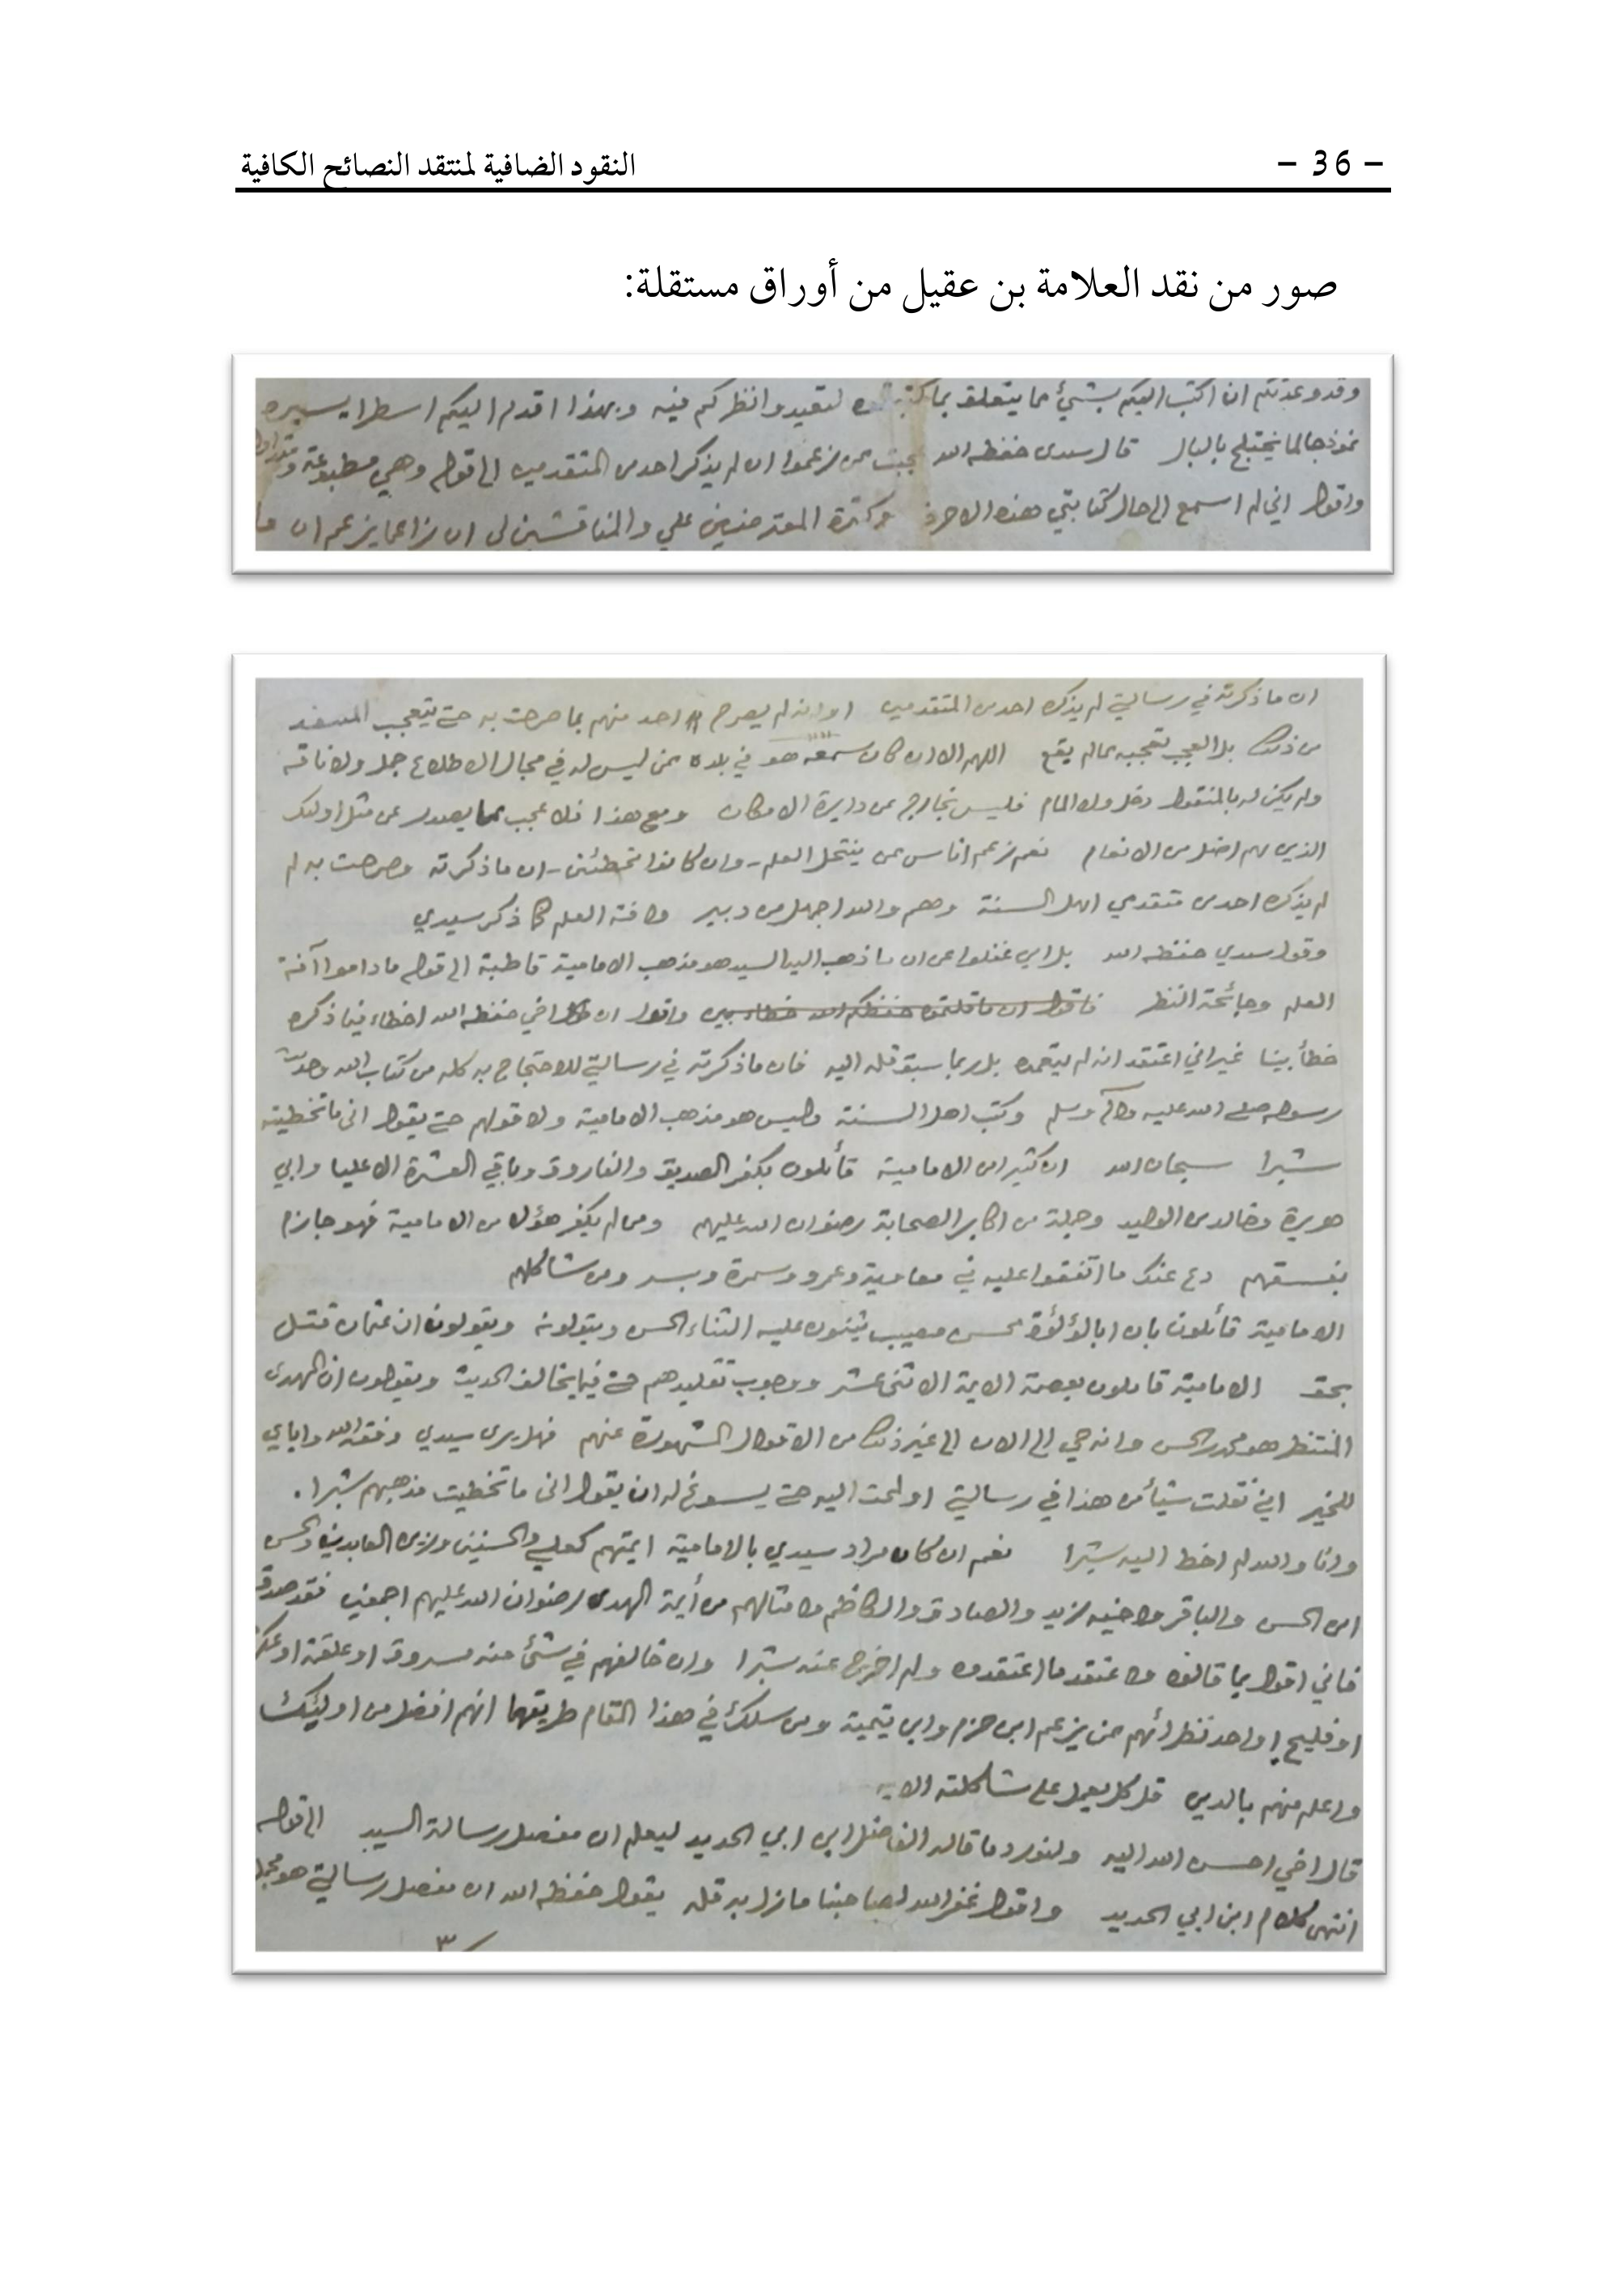 النقود الضافية لمنتقد النصائح الكافية – 36 –
صور من نقد العلامة بن عقيل من أوراق مستقلة:
وقد وعدتكم ان اكتب اليكم بشيء مما يتعلق بما لتقيدوا نظركم فيه وبهذا اقدم اليكم اسطرا يسيره
نموذجا لما يختلج بالبال قال سيدى حفظه الله عجبت ممن زعموا ان لم يذكر احد من المتقدمين الى قوله وهي مطبوعة
واقول اني لم اسمع الى حال كتابتي هذه الاحرف وكثرة المعترضين علي والمناقشين لى ان زاعما يزعم ان ما
ان ما ذكرته في رسالتي لم يذكره احد من المتقدمين او انه لم يصرح احد منهم بما صرحت به حتى يتعجب
من ذلك بل العجب تعجبه مما لم يقع اللهم الا ان كان سمعه هو في بلده ممن ليس له في مجال الاطلاع جمل ولا ناقة
ولم يكن له بالمنقول دخل ولا المام فليس بخارج عن دايرة الامكان ومع هذا فلا عجب مما يصدر عن مثل اولئك
الذين هم اضل من الانعام نعم زعم اناس ممن ينتحل العلم - وان كانوا مخطئين - ان ما ذكرته وصرحت به لم
لم يذكره احد من متقدمي اهل السنة وهم والله اجهل من دبير وافة العلم كما ذكر سيدي
وقول سيدي حفظه الله بل اين غفلوا عن ان ما ذهب اليه السيد هو مذهب الامامية قاطبة الى قوله ما داموا آفة
العلم وجائحة النظر فاقول ان ما قلتموه حفظكم الله خطاء بين واقول ان اخي حفظه الله اخطاء فيما ذكره
خطأ بينا غير اني اعتقد انه لم يتعمده بل ربما سبق قلمه اليه فان ما ذكرته في رسالتي للاحتجاج به كله من كتاب الله وحديث
رسوله صلى الله عليه وآله وسلم وكتب اهل السنة وليس هو مذهب الامامية ولا قولهم حتى يقول انى ما تخطيته
شبرا سبحان الله ان كثيرا من الامامية قائلون بكفر الصديق والفاروق وباقي العشرة الا عليا وابي
هريرة وخالد بن الوليد وجملة من اكابر الصحابة رضوان الله عليهم ومن لم يكفر هؤلاء من الامامية فهو جازم
بفسقهم دع عنك ما اتفقوا عليه في معاوية وعمرو وسمرة وبسر ومن شاكلهم
الامامية قائلون بان ابا لؤلؤة محسن مصيب يثنون عليه الثناء الحسن ويتولونه ويقولون ان عثمان قتل
بحق الامامية قائلون بعصمة الايمة الاثنى عشر ووجوب تقليدهم حتى فيما يخالف الحديث ويقولون ان المهدى
المنتظر هو محمد بن الحسن وانه حي الى الان الى غير ذلك من الاقوال المشهورة عنهم فهل يرى سيدي وفقه الله واياي
للخير اني نقلت شيئا من هذا في رسالتي او لمحت اليه حتى يسوغ له ان يقول انى ما تخطيت مذهبهم شبرا .
وانا والله لم اخط اليه شبرا نعم ان كان مراد سيدي بالامامية ايمتهم كعلي والحسنين وزين العابدين والحسن
ابن الحسن والباقر واخيه زيد والصادق والكاظم وامثالهم من أيمة الهدى رضوان الله عليهم اجمعين فقد صدق
فاني اقول بما قالوه واعتقد ما اعتقدوه ولم اخرج عنه شبرا وان خالفهم في شئ منه مسروق او علقمة او
او فليح او احد نظرائهم ممن يزعم ابن حزم وابن تيمية ومن سلك في هذا المقام طريقهما انهم افضل من اوليئك
واعلم منهم بالدين قل كل يعمل على شاكلته الاية
قال اخي احسن الله اليه ولنورد ما قاله الفاضل ابن ابي الحديد ليعلم ان مفصل رسالة السيد الى قوله
انتهى كلام ابن ابي الحديد واقول غفر الله لصاحبنا ما زل به قلمه يقول حفظه الله ان مفصل رسالتي هو مجمل
٣